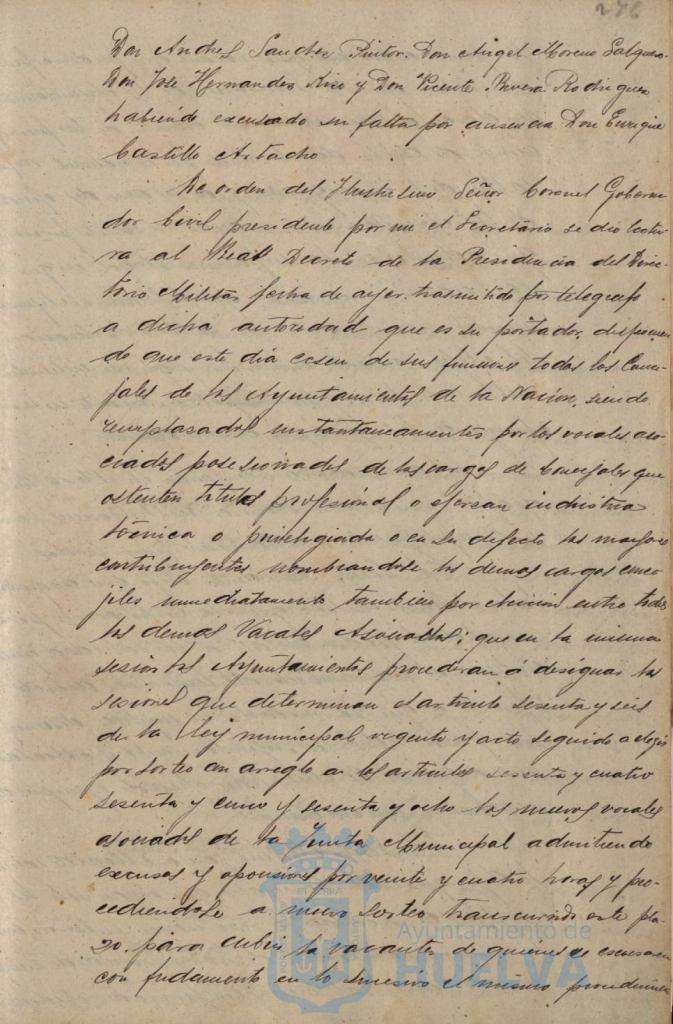 276
Don Andres Sanchez Pintor. Don Angel Moreno Salguero.
Don Jose Hernandez Rizo y Don Vicente Rivera Rodriguez
habiendo excusado su falta por ausencia Don Enrique
Castillo Artacho
De orden del Ilustrisimo Señor Coronel Goberna
dor Civil presidente por mi el Secretario se dio lectu
ra al Real Decreto de la Presidencia del Direc
torio Militar fecha de ayer trasmitido por telegrafo
a dicha autoridad que es su portador, disponien
do que este dia cesen de sus funciones todos los Conce
jales de los Ayuntamientos de la Nacion, siendo
reemplazados instantaneamente por los vocales aso
ciados posesionados de los cargos de Concejales que
ostenten titulos profesional o ejerzan industria
técnica o privilegiada o en su defecto los mayores
contribuyentes nombrandose los demas cargos conce
jiles inmediatamente tambien por eleccion entre todos
los demas Vocales Asociados; que en la misma
sesion los Ayuntamientos procederan á designar las
sesiones que determinan el articulo sesenta y seis
de la Ley municipal vigente y acto seguido a elegir
por sorteo con arreglo a los articulos sesenta y cuatro
sesenta y cinco y sesenta y ocho los nuevos vocales
asociados de la Junta Municipal admitiendo
excusas y oposiciones por veinte y cuatro horas y pro
cediendose a nuevo sorteo transcurrido este pla
zo para cubrir la vacantes de quienes se excusaren
con fundamento en lo sucesivo el mismo procedimien
Ayuntamiento de
HUELVA